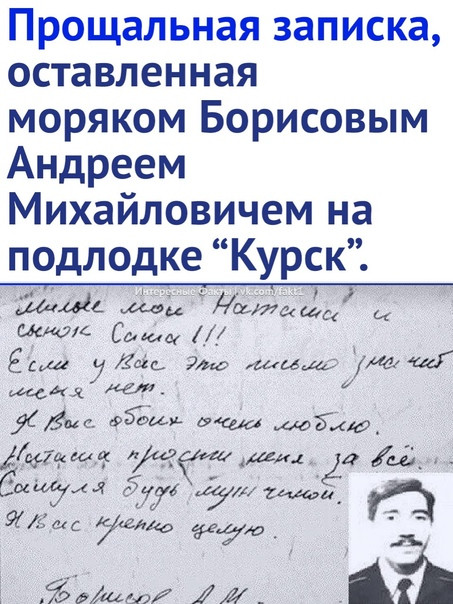 Прощальная записка,
оставленная
моряком Борисовым
Андреем
Михайловичем на
подлодке “Курск”.
Интересные Факты | vk.com/fakt1
милые мои Наташа и
сынок Саша !!!
Если у Вас это письмо, значит
меня нет.
Я Вас обоих очень люблю.
Наташа прости меня за всё.
Сашуля будь мужчиной.
Я Вас крепко целую.
Борисов А.М.